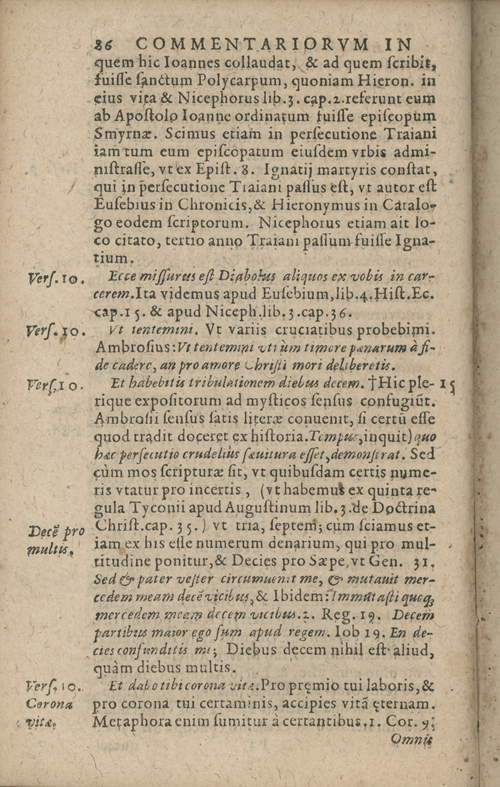 86 COMMENTARIORVM IN
quem hic Ioannes collaudat, & ad quem ſcribit,
fuiſſe ſanctum Polycarpum, quoniam Hieron. in
eius vita & Nicephorus lib.3. cap.2. referunt eum
ab Apoſtolo Ioanne ordinatum fuiſſe epiſcopum
Smyrnæ. Scimus etiam in perſecutione Traiani
iam tum eum epiſcopatum eiuſdem vrbis admi-
niſtraſſe, vt ex Epiſt. 8. Ignatij martyris conſtat,
qui in perſecutione Traiani paſſus eſt, vt autor eſt
Euſebius in Chronicis, & Hieronymus in Catalo-
go eodem ſcriptorum. Nicephorus etiam ait lo-
co citato, tertio anno Traiani paſſum fuiſſe Igna-
tium.
Verſ. 10. Ecce miſſurus eſt Diabolus aliquos ex vobis in car-
cerem. Ita videmus apud Euſebium, lib.4. Hiſt. Ec.
cap.15. & apud Niceph. lib.3. cap.36.
Verſ. 10. Vt tentemini. Vt variis cruciatibus probebimi.
Ambroſius: Vt tentemini vtrùm timore pænarum à fi-
de cadere, an pro amore Chriſti mori deliberetis.
Verſ. 10. Et habebitis tribulationem diebus decem. †Hic ple- 15
rique expoſitorum ad myſticos ſenſus confugiũt.
Ambroſii ſenſus ſatis literæ conuenit, ſi certũ eſſe
quod tradit doceret ex hiſtoria. Tempus, inquit) quo
hæc perſecutio crudelius ſæuitura eſſet, demonſtrat. Sed
cùm mos ſcripturæ ſit, vt quibuſdam certis nume-
ris vtatur pro incertis, (vt habemus ex quinta re-
gula Tyconii apud Auguſtinum lib.3. de Doctrina
Decẽ pro
multis.
Chriſt. cap.35.) vt tria, ſeptem; cùm ſciamus et-
iam ex his eſſe numerum denarium, qui pro mul-
titudine ponitur, & Decies pro Sæpe, vt Gen. 31.
Sed & pater veſter circumuenit me, & mutauit mer-
cedem meam decẽ vicibus, & Ibidem: Immutaſti queq;
mercedem meam decem vicibus. 2. Reg. 19. Decem
partibus maior ego ſum apud regem. Iob 19. En de-
cies confunditis me; Diebus decem nihil eſt aliud,
quàm diebus multis.
Verſ. 10.
Corona
vitæ.
Et dabo tibi corona vitæ. Pro præmio tui laboris, &
pro corona tui certaminis, accipies vitã ęternam.
Metaphora enim ſumitur à certantibus. 1. Cor. 9.
Omnis